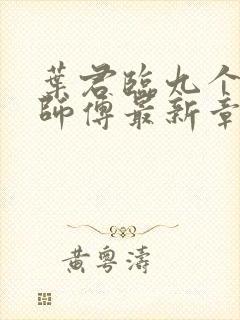 葉君臨九个
師傅最新章
黄粤濤